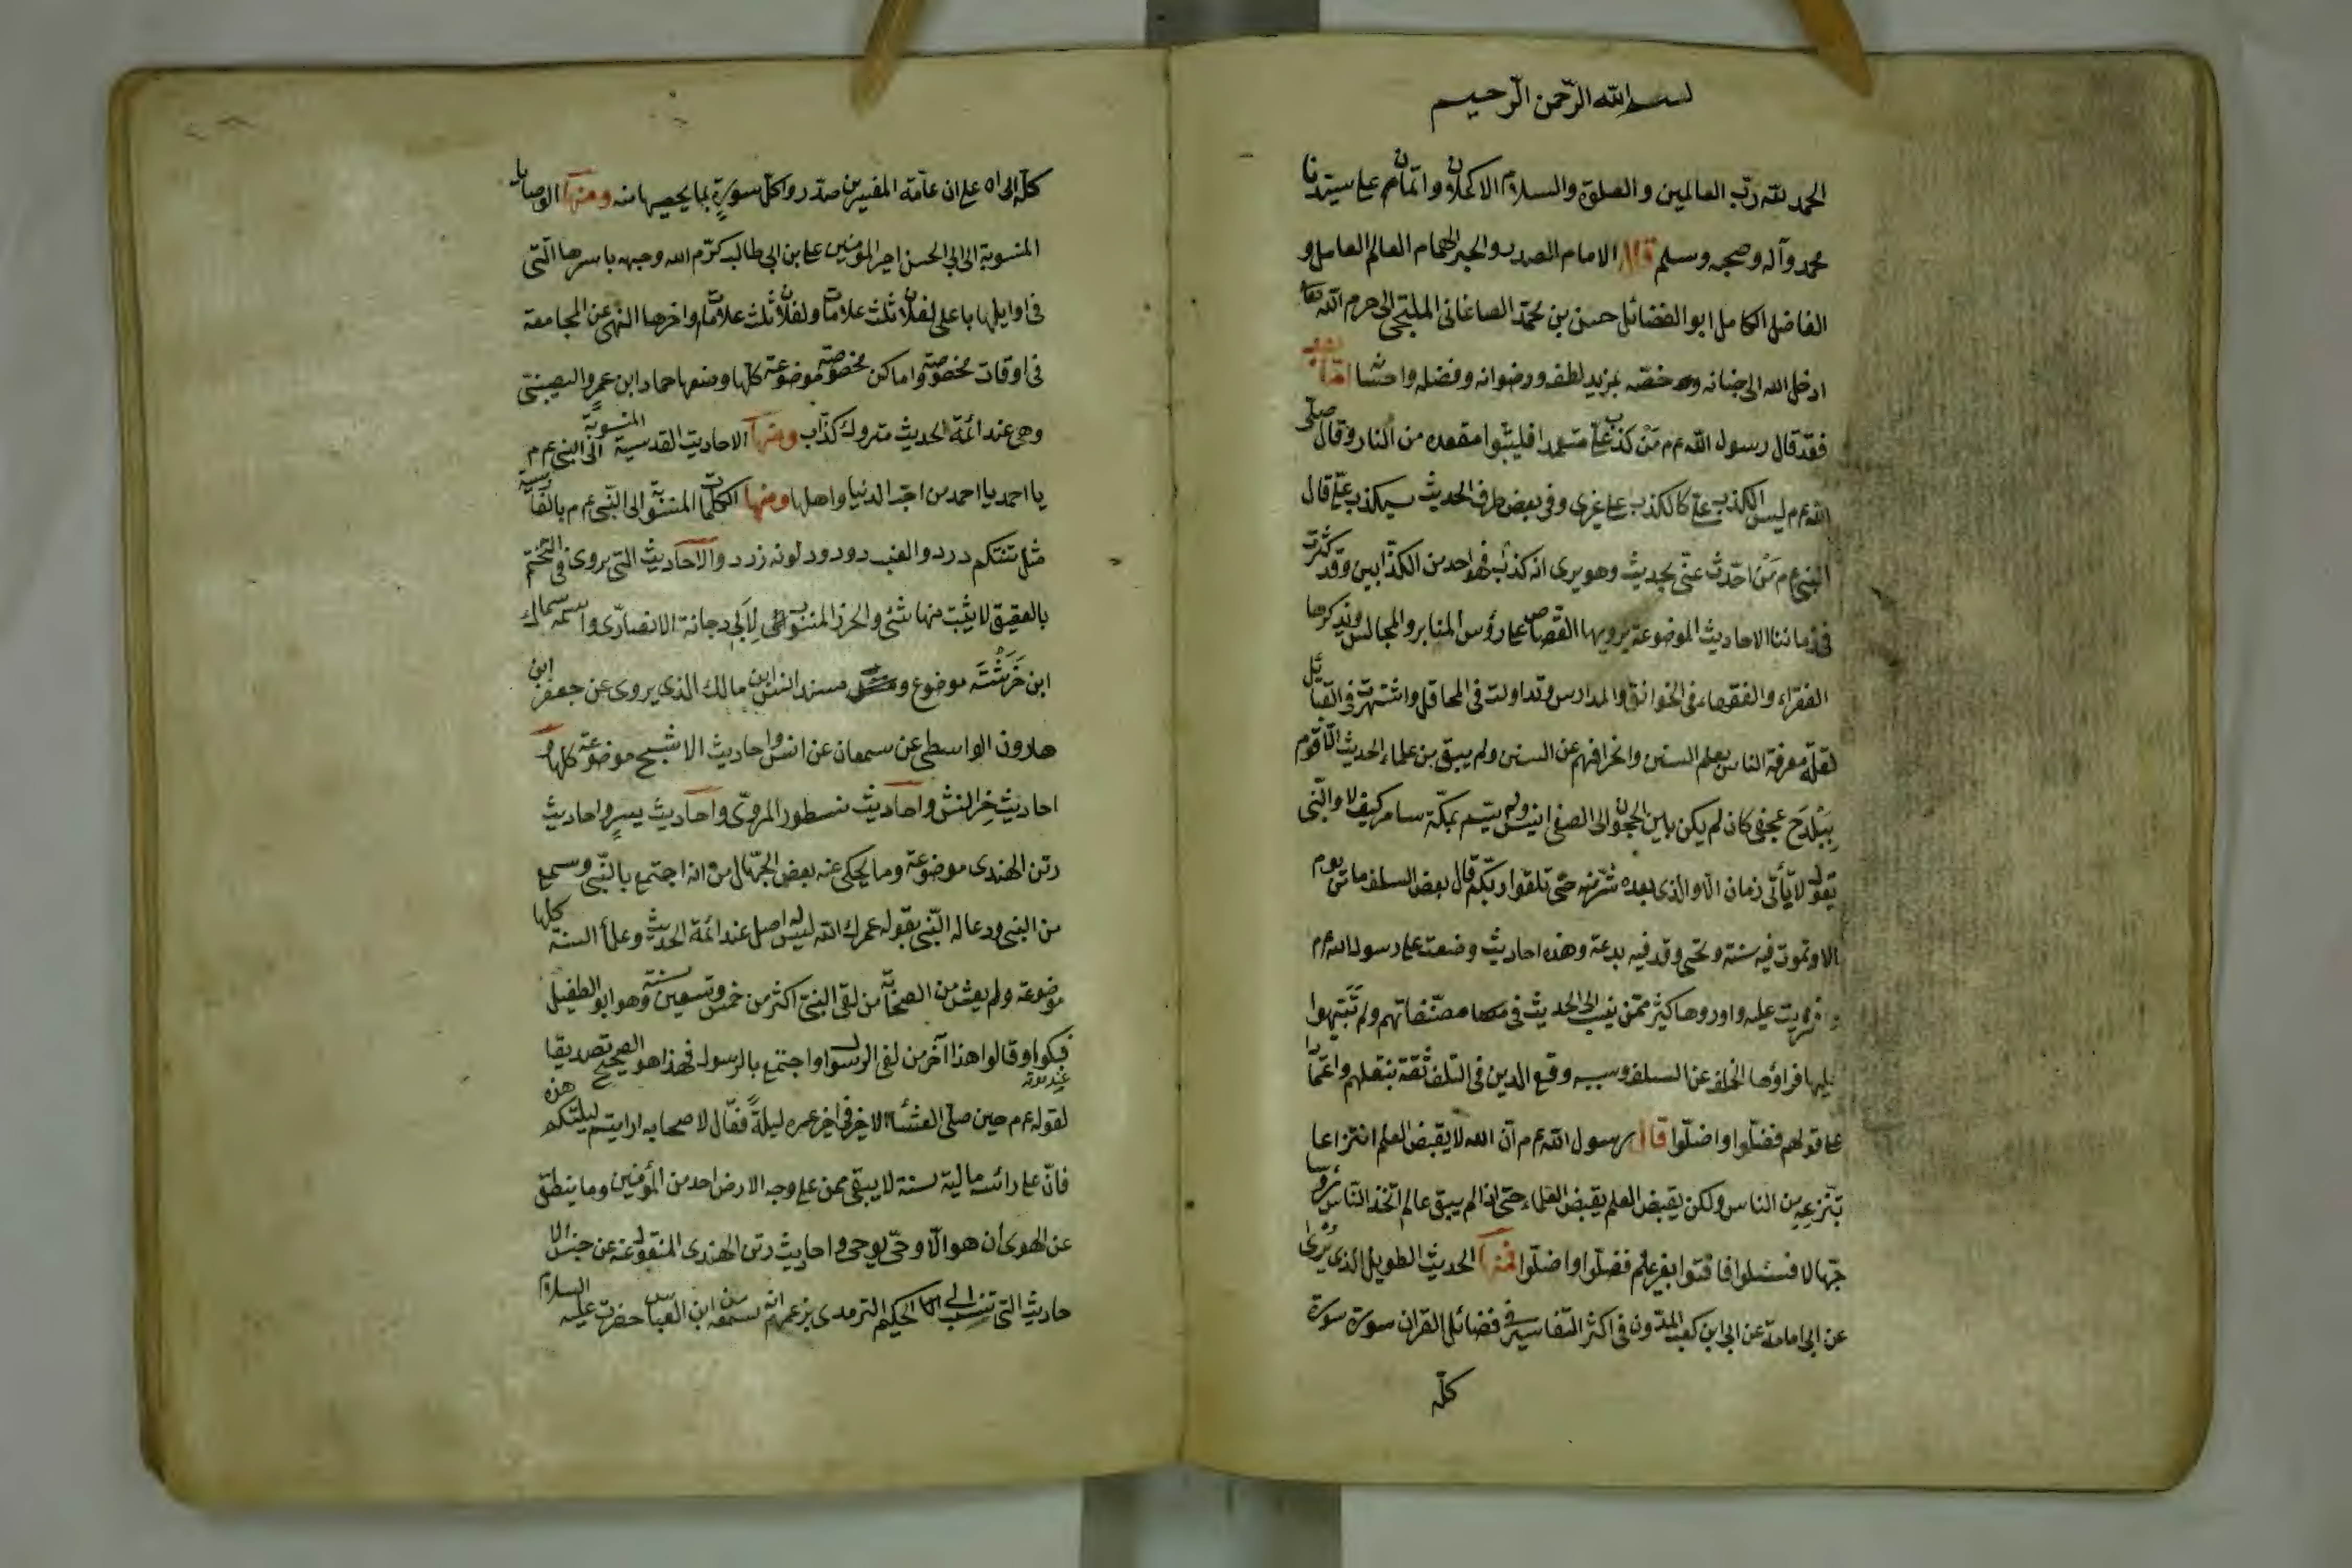 بسم الله الرّحمن الرّحيم
الحمد لله ربّ العالمين والصلوة والسلام الاكملان واتمّان على سيّدنا
محمد وآله وصحبه وسلم قال الامام الصدر والحبر الهمام العالم العامل و
الفاضل الكامل ابو الفضائل حسن بن محمّد الصاغانى الملتجى الى حرم الله تعا
ادخل الله الى جنانه وخصّه بمزيد لطفه ورضوانه وفضله واحسا امّا بعد
فقد قال رسول الله عم من كذب علىّ متعمدا فليتبوا مقعده من النار وقال صلّى
الله عم ليس الكذب علىّ كالكذب على غيرى وفى بعض طرف الحديث سيكذب علىّ قال
النبى عم مَنْ احّدث عنّى بحديث وهو يرى انه كذب فهو احد من الكذّابين وقد كثرت
فى زماننا الاحاديث الموضوعة يرويها القصاص على رؤس المنابر والمجالس ويذكرها
الفقراء والفقهاء فى الخوانق والمدارس وتداولت فى المحافل واشتهرت فى القبائل
لقلّة معرفة الناس بعلم السنن وانحرافهم عن السنن ولم يبق من علماء الحديث الّا قوم
بِبَلْدَح عجفى كان لم يكن باين الحجون الى الصفى انيس ولم يتم بمكّة سامر كيف لا والنّبى
يقول لا يأتى زمان الّا والذى بعده شرّ منه حتى تلقوا ربّكم قال بعض السلف ما من يوم
الا وتموت فيه سنة وتحيى وقد فيه بدعة وهذه احاديث وضعت على رسول الله عم
وافتريت عليه واوروها كثير ممّن ينسب الى الحديث فى مصنّفاتهم ولم يُنَبّهوا
عليها فراؤها الخلف عن السلف وسببه وقع الدين فى التلف ثقة بنقلهم واعتمادا
على قولهم فضلّوا واضلّوا قال رسول الله عم انّ الله لا يقبض العلم انتزاعا
تنزعه من الناس ولكن يقبض العلم بقبض العلماء حتى اذا لم يبق عالم اتّخذ النّاس رؤسا
جهّالا فسئلوا فافتوا بغير علم فضلّوا واضلّوا فمنها الحديث الطويل الذى يُروى
عن ابى امامة عن ابى ابن كعب المدّون فى اكثر التفاسير فى فضائل القران سورة سورة
كلّه
كلّه الى اه على ان عامّة المفسرين صدّروا كلّ سورةٍ بما يخصها منه ومنها الوصايا
المنسوبة الى ابى الحسن امير المؤمنين على بن ابى طالب كرّم الله وجهه باسرها الّتى
فى اوايلها يا على لفلان ثلث علامات ولفلان ثلث علامات واخرها النهى عن المجامعة
فى اوقات مخصوصة واماكن مخصوصة موضوعة كلّها وضعها حماد ابن عمرٍو النصيبىّ
وهى عند ائمّة الحديث متروك كذّاب ومنها الاحاديث القدسية المنسوبة الى النبى عم
يا احمد يا احمد من احبّ الدنيا واهلها ومنها الكلمات المنسوبة الى النّبى عم بالفارسية
مثل تنتكم درد والعنب دودو لونه زرد والاحاديث التى يروى فى التختم
بالعقيق لا يثبت منها شئ والحرز المنسوب لِاَبى دجانة الانصارى واسمه سماك
ابن خَرَشَتَه موضوع ومسند انس ابن مالك الذى يروى عن جعفر ابن
هارون الواسطى عن سمعان عن انس واحاديث الاشبح موضوعة كلها و
احاديث خِراش واحاديث نسطور المروىّ واحاديث يسرٍ واحاديث
رتن الهندى موضوعة وما يحكى عنه بعض الجهّال من انه اجتمع بالنّبى وسمع
من النبى ودعا له النّبى بقوله عمرك الله ليس له اصل عند ائمة الحديث وعلماء السنة كلها
موضوعة ولم يعش من الصحابة من لقى النبىّ اكثر من خمس وتسعين سنة وهو ابو الطفيل
فبكوا وقالوا هذا آخر من لقى الرسول واجتمع بالرسول فهذا هو الصحيح تصديقا
عند موته
لقوله عم حين صلّى العشاء الاخر فى اخر عمره ليلةً فقال لاصحابه ارايتم ليلتكم هذه
فانّ على رائس ماية سنة لا يبقى ممن على وجه الارض احد من المؤمنين وما ينطق
عن الهوى ان هو الّا وحى يوحى واحاديث رتن الهندى المنقولة عنه عن جنس الا
حاديث التى تنسب الى الحكيم الترمدى بزعمهم انه سمعه من ابن العباس حضرت عليه السلام